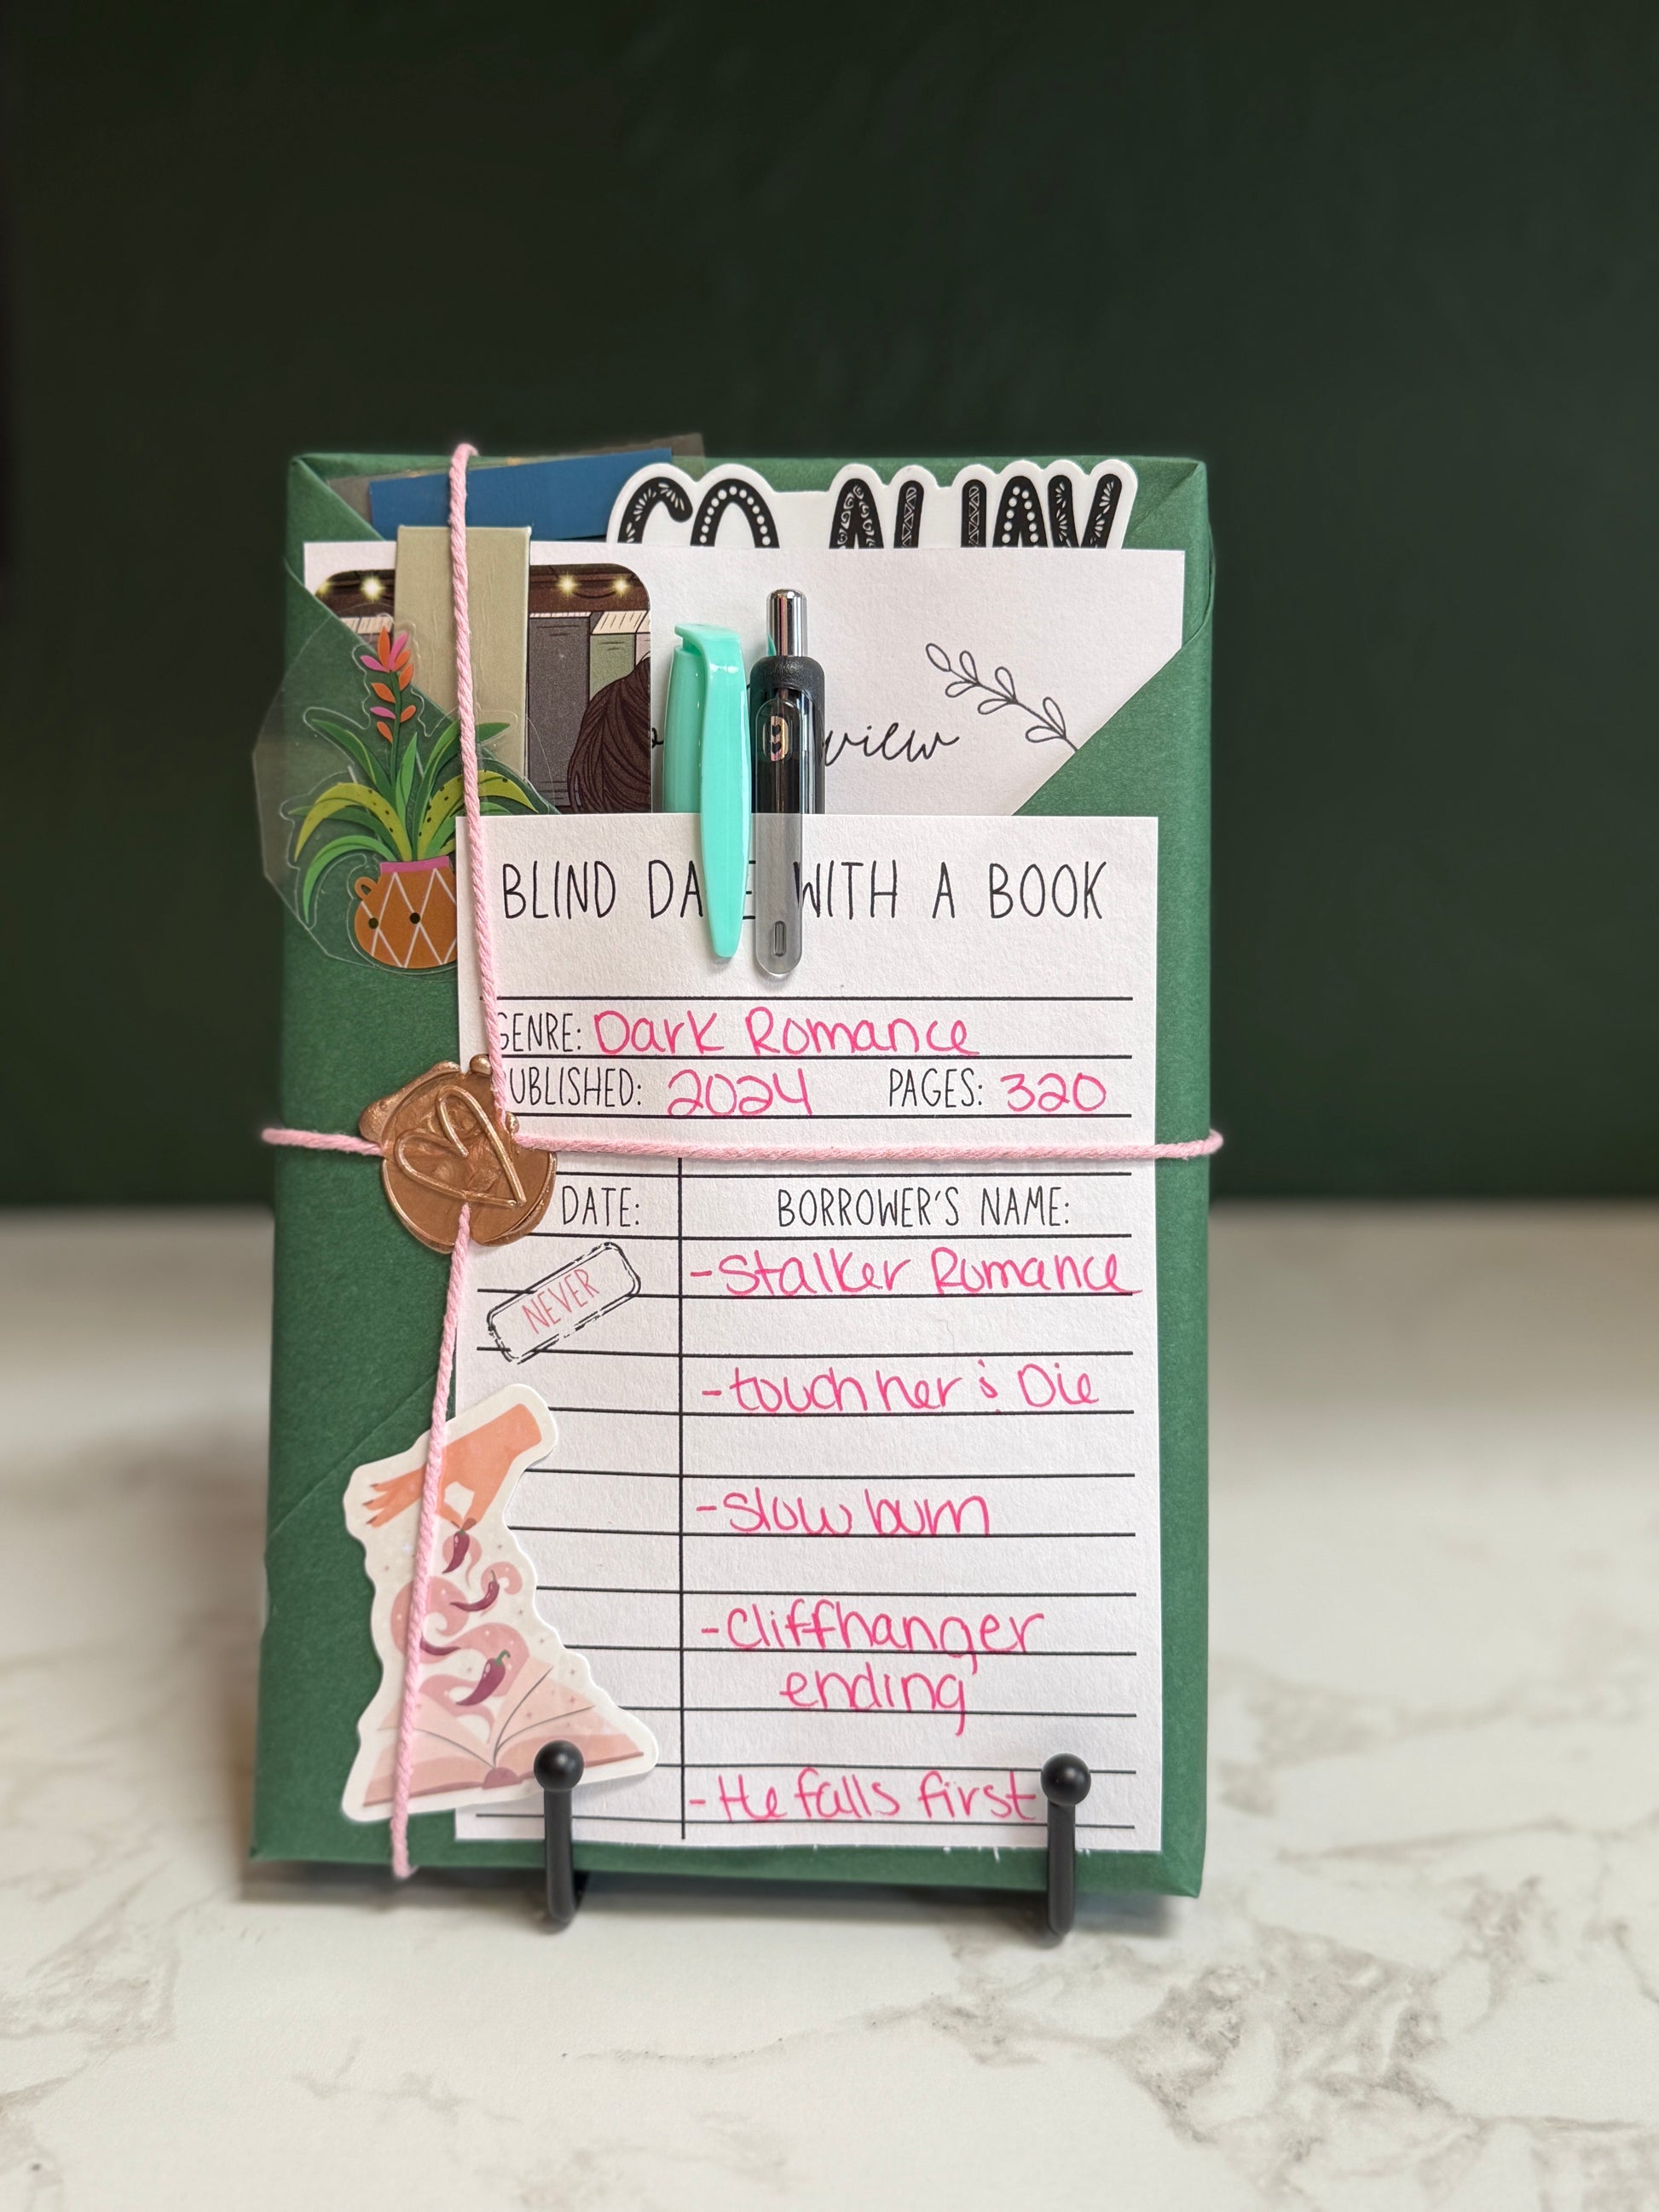 GO AWAY
view
BLIND DATE WITH A BOOK
GENRE: Dark Romance
PUBLISHED: 2024 PAGES: 320
DATE: BORROWER'S NAME:
NEVER
-Stalker Romance
-touch her & Die
-slow burn
-Cliffhanger
ending
-He falls first